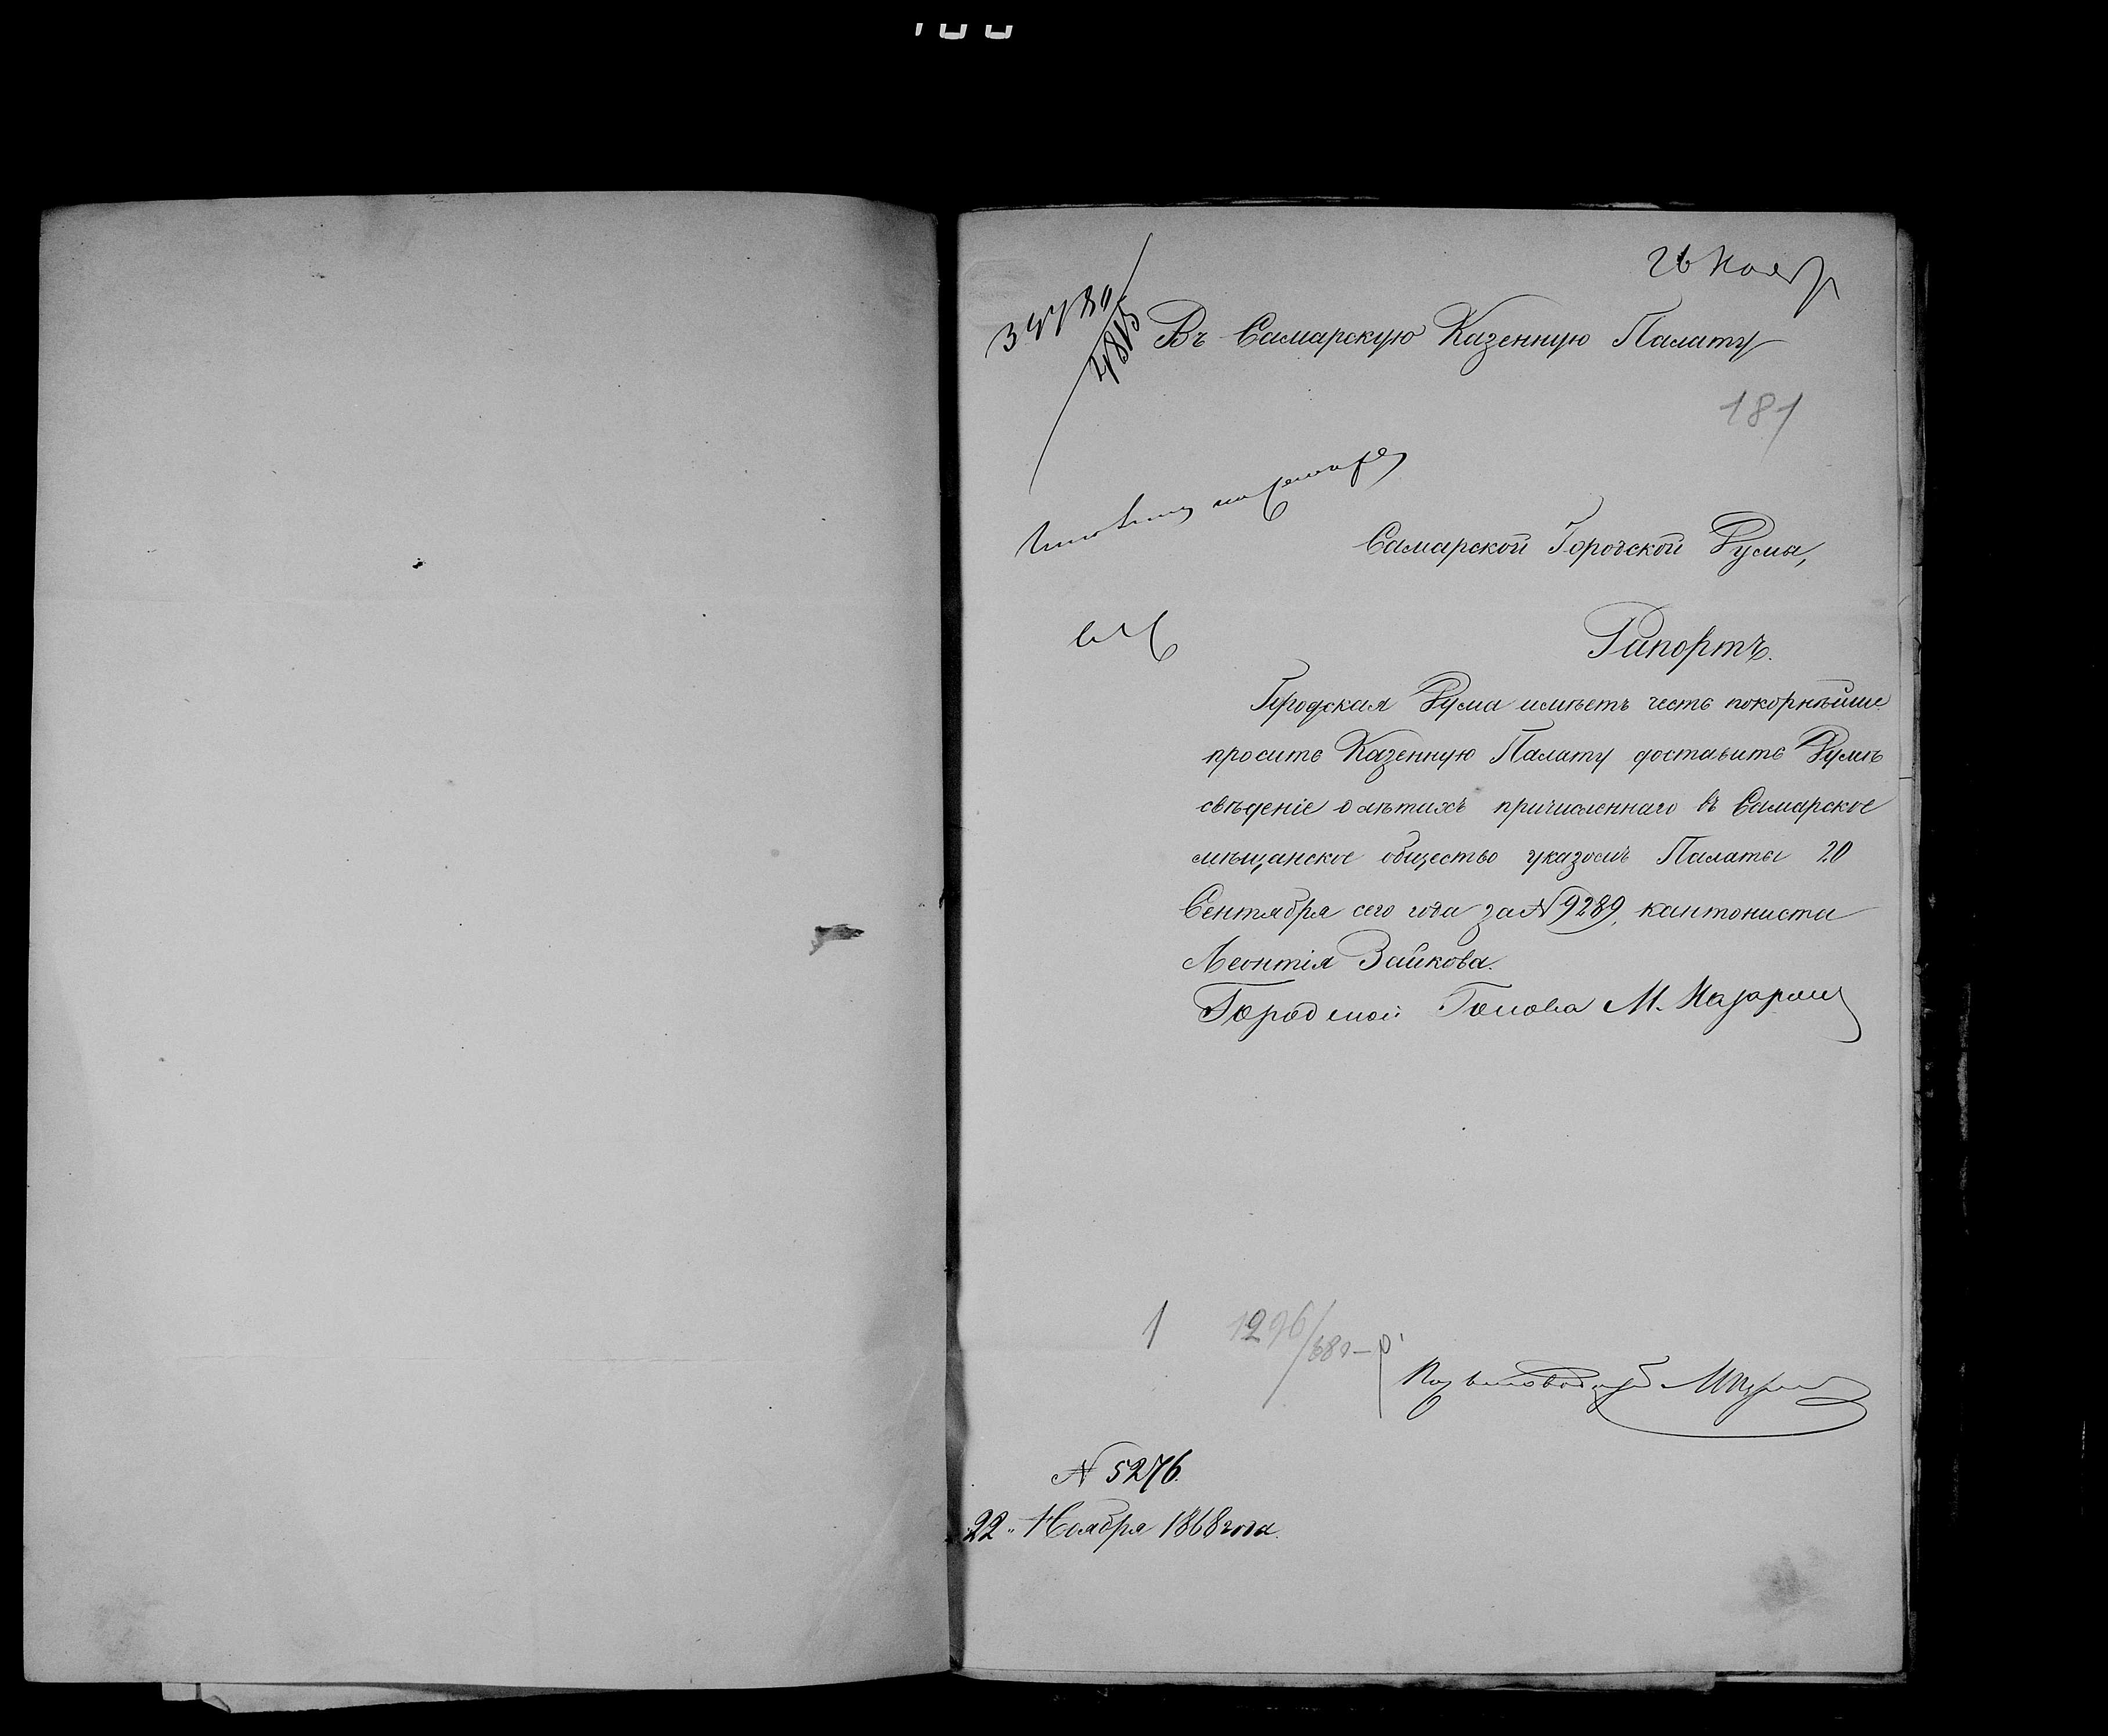 26 Нояб
Въ Самарскую Казенную Палату
181
Самарской Городской Думы,
Рапортъ.
Городская Дума имѣетъ честь покорнѣйше
просить Казенную Палату доставить Думѣ
свѣденіе о лѣтахъ причисленнаго въ Самарское
мѣщанское общество указомъ Палаты 20
Сентября сего года за № 9289, кантониста
Леонтія Зайкова.
Городской Голова М. Назаров
1
1296/68
№ 5276.
22 " Ноября 1868 года.